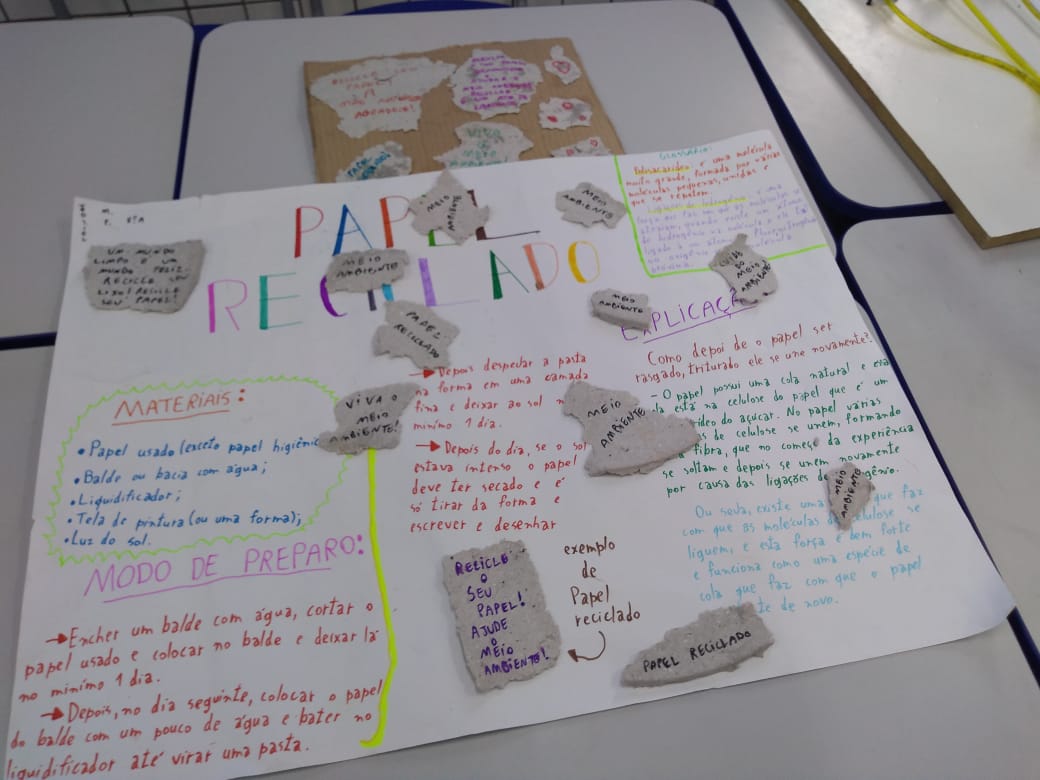 RECICLE SEU
PAPEL!
A
MÃE NATUREZA
AGRADECE!
VIVA O
MEIO
AMBIENTE
GLOSSÁRIO:
Polissacarídeo: é uma molécula
muito grande, formada por várias
moléculas pequenas, unidas e
que se repetem.
Ligações de hidrogênio: é uma
força que faz com que as moléculas se
atraiam, quando existe um átomo
de hidrogênio na molécula e ele
ligado a um átomo
ou oxigênio
molécula
próxima.
PAPEL
RECICLADO
MEIO
AMBIENTE
MEIO
AMBIENTE
MEIO
AMBIENTE
UM MUNDO
LIMPO É UM
MUNDO FELIZ.
RECICLE SEU
LIXO! RECICLE
SEU PAPEL!
PAPEL
RECICLADO
MEIO
AMBIENTE
CUIDE
DO
MEIO
AMBIENTE!
MATERIAIS:
• Papel usado (exceto papel higiênic
• Balde ou bacia com água;
• Liquidificador;
• Tela de pintura (ou uma forma);
• Luz do sol.
VIVA O
MEIO
AMBIENTE!
MODO DE PREPARO:
→ Encher um balde com água, cortar o
papel usado e colocar no balde e deixar lá
no mínimo 1 dia.
→ Depois, no dia seguinte, colocar o papel
do balde com um pouco de água e bater no
liquidificador até virar uma pasta.
→ Depois despejar a pasta
na forma em uma camada
fina e deixar ao sol n
mínimo 1 dia.
→ Depois do dia, se o sol
estava intenso o papel
deve ter secado e é
só tirar da forma e
escrever e desenhar
RECICLE
O
SEU
PAPEL!
AJUDE
O
MEIO
AMBIENTE!
exemplo
de
Papel
reciclado
MEIO
AMBIENTE
EXPLICAÇÃ
Como depois de o papel ser
rasgado, triturado ele se une novamente?
- O papel possui uma cola natural e essa
la está na celulose do papel que é um
rídeo do açúcar. No papel várias
s de celulose se unem, formando
fibra, que no começo da experiência
se soltam e depois se unem novamente
por causa das ligações de ogênio.
MEIO
AMBIENTE
Ou seja, existe uma que faz
com que as moléculas de celulose se
liguem, e esta força é bem forte
e funciona como uma espécie de
cola que faz com que o papel
te de novo.
PAPEL RECICLADO